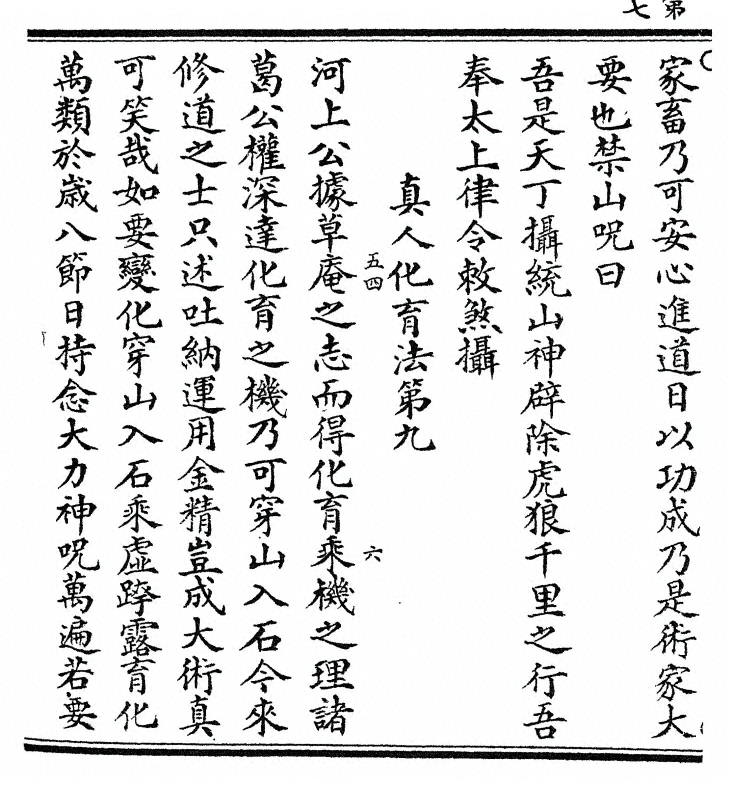 第
七
家畜乃可安心進道日以功成乃是術家大
要也禁山呪曰
吾是天丁攝統山神辟除虎狼千里之行吾
奉太上律令敕煞攝
真人化育法第九
五四
六
河上公據草庵之志而得化育乘機之理諸
葛公權深達化育之機乃可穿山入石今來
修道之士只述吐納運用金精豈成大術真
可笑哉如要變化穿山入石乘虛蹄露育化
萬類於歲八節日持念大力神呪萬遍若要